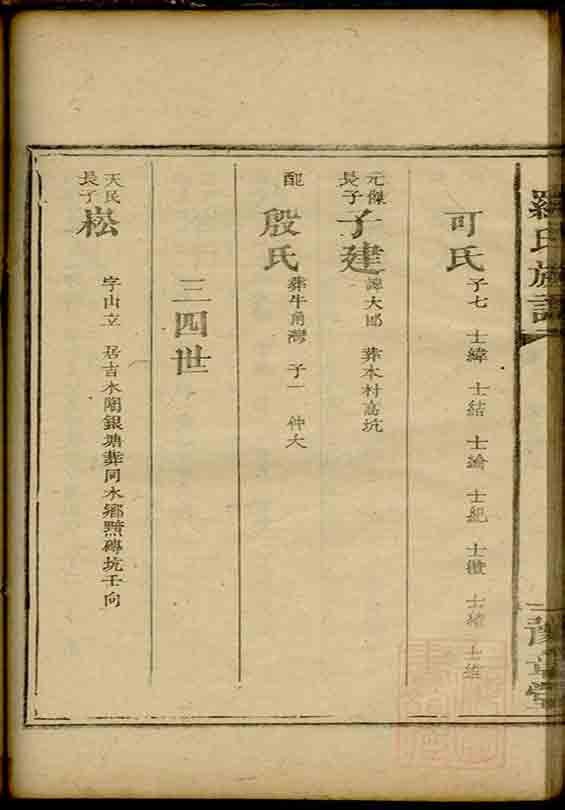 羅氏族譜
豫章堂
可氏 子七 士緯 士結 士綸 士紀 士徽 士緒 士維
元傑長子 子建 諱大郎 葬本村高坑
配 殷氏 葬牛角灣 子一 仲大
三四世
天民長子 崧 字山立 居吉水閣銀塘葬同水鄉黰磚坑壬向